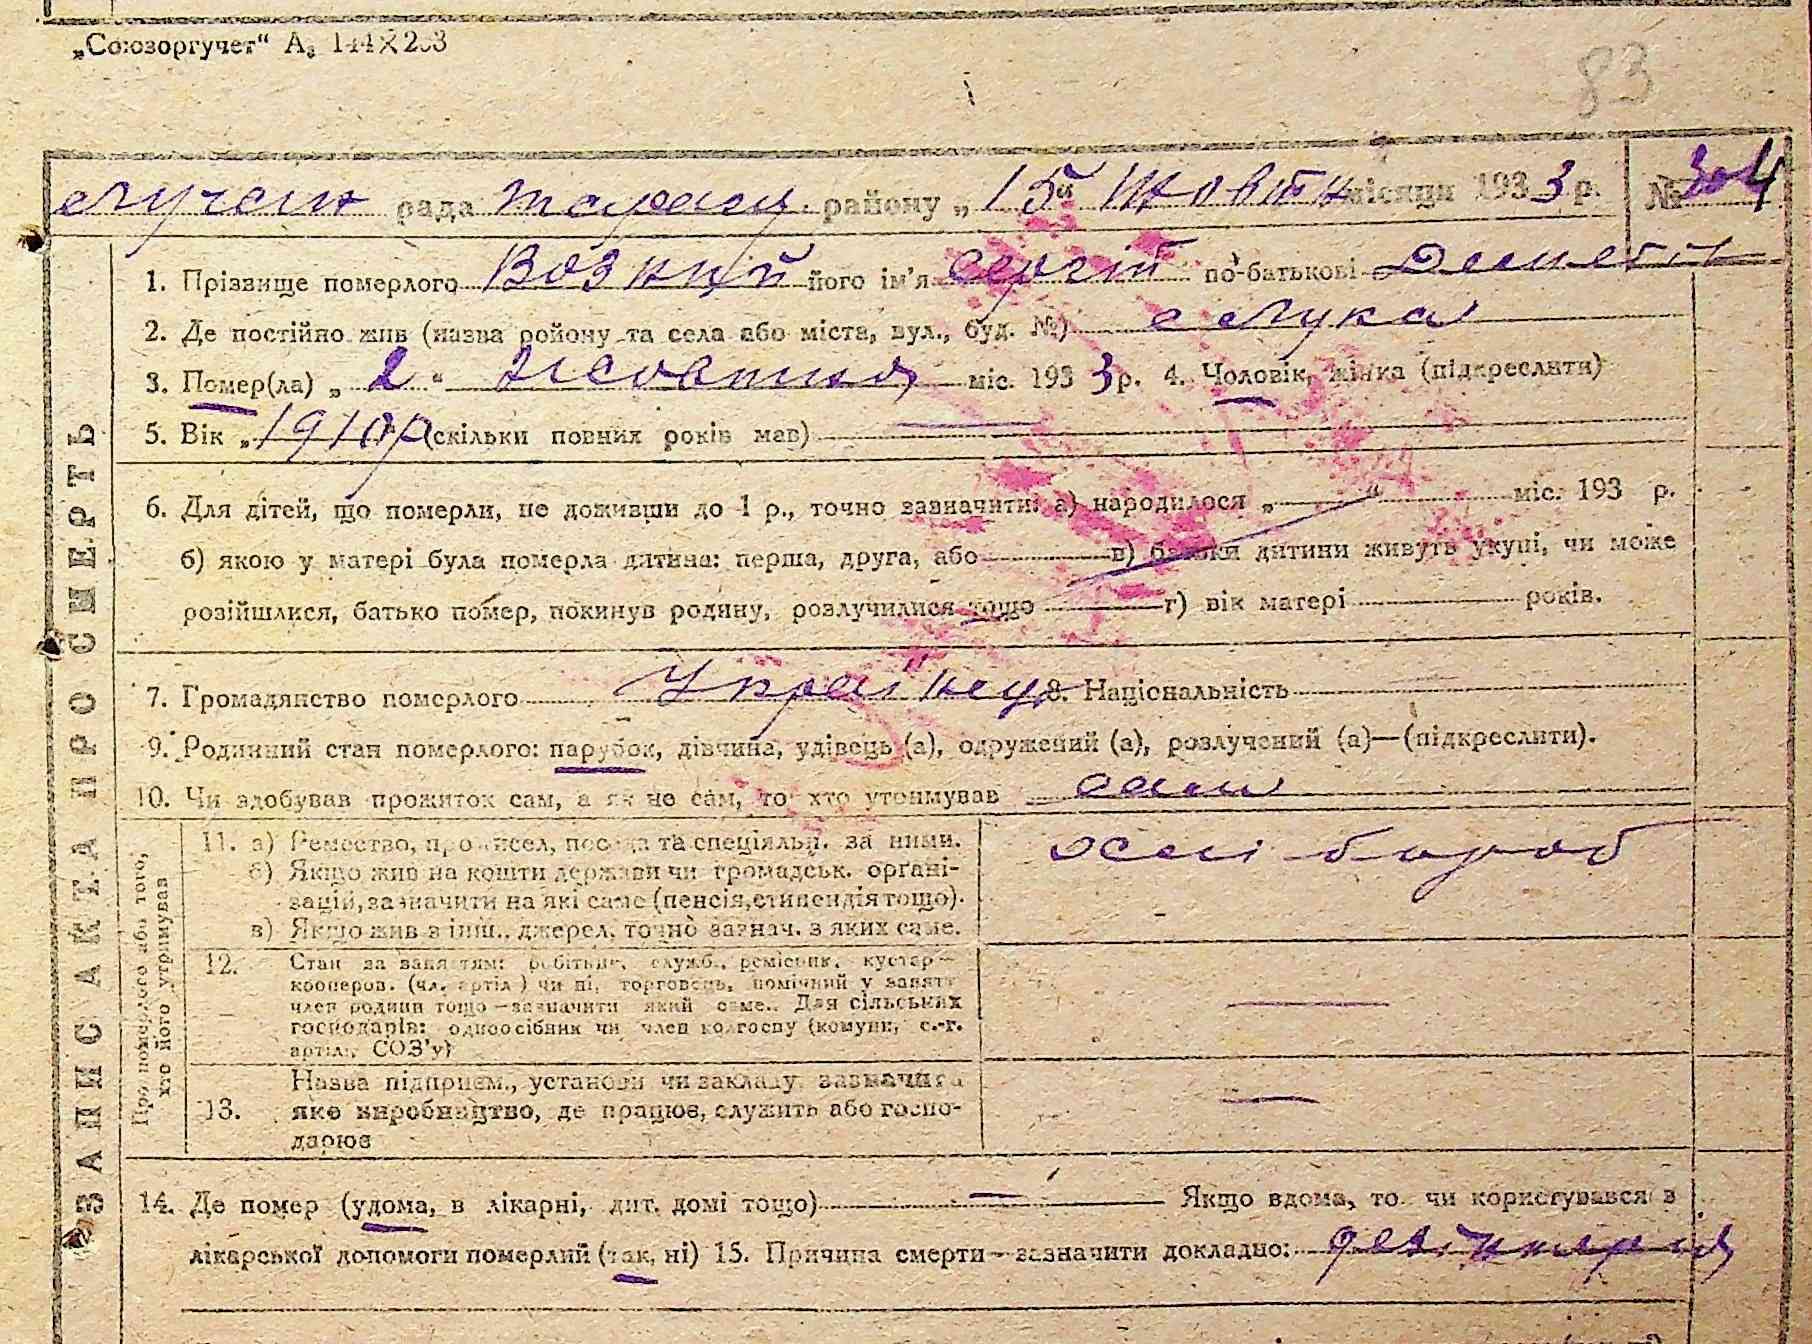 „Союзоргучет“
83
Лучан рада Таращ. району „15“ Жовтня місяця 1933 р. № 304
1. Прізвище померлого Возний його ім'я Сергій по-батькові
2. Де постійно жив (назва ройону та села або міста, вул., буд. №) с Лука
3. Помер(ла) „2“ Жовтня міс. 1933 р. 4. Чоловік, жінка (підкреслити)
5. Вік „1910р (скільки повних років мав)
6. Для дітей, що померли, не доживши до 1 р., точно зазначити: а) народилося „ “ міс. 193 р.
б) якою у матері була померла дитина: перша, друга, або в) батьки дитини живуть укупі, чи може
розійшлися, батько помер, покинув родину, розлучилися тощо г) вік матері років.
7. Громадянство померлого Українец 8. Національність
9. Родинний стан померлого: парубок, дівчина, удівець (а), одружений (а), розлучений (а)—(підкреслити).
10. Чи здобував прожиток сам, а як не сам, то хто утримував сам
11. а) Ремество, промисел, посада та спеціяльн. за ними. хлібороб
б) Якщо жив на кошти держави чи громадськ. органі-
зацій, зазначити на які саме (пенсія, стипендія тощо).
в) Якщо жив з інш. джерел, точно зазнач. з яких саме.
12. Стан за заняттям: робітник, служб., ремісник, кустар—
кооперов. (чл. артіл.) чи ні, торговець, помічний у занятт
член родини тощо—зазначити який саме. Для сільських
господарів: одноосібник чи член колгоспу (комуни, с.-г.
артілі, СОЗ'у)
Назва підприєм., установи чи закладу, зазначити
13. яке виробництво, де працює, служить або госпо-
дарює
14. Де помер (удома, в лікарні, дит. домі тощо) Якщо вдома, то чи користувався в
лікарської допомоги померлий (так, ні) 15. Причина смерти—зазначити докладно: дезінтерія
ЗАПИС АКТА ПРО СМЕРТЬ
Про померлого або того,
хто його утримував